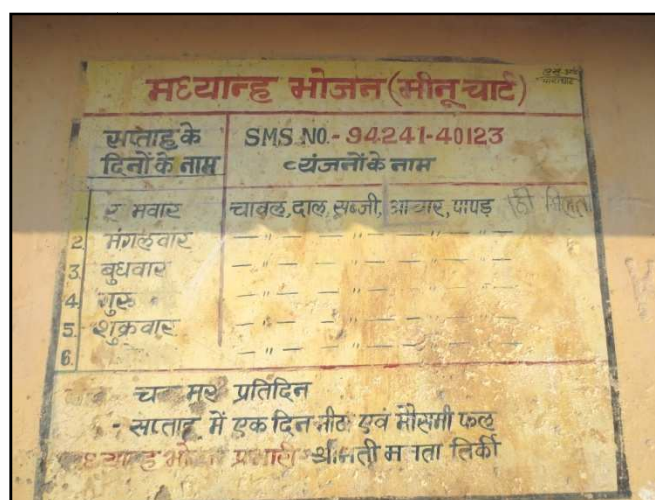 मध्यान्ह भोजन (मीनू चार्ट)
सप्ताह के दिनों के नाम
SMS NO.- 94241-40123
व्यंजनों के नाम
चावल, दाल, सब्जी, आचार, पापड़
2. मंगलवार — " — " — " — " — " —
3. बुधवार — " — " — " — " — " —
4. गुरु — " — " — " — " — " —
5. शुक्रवार — " — " — " — " — " —
6. — " — " — " — " — " —
प्रतिदिन
- सप्ताह में एक दिन एवं मौसमी फल
श्रीमती तिर्की